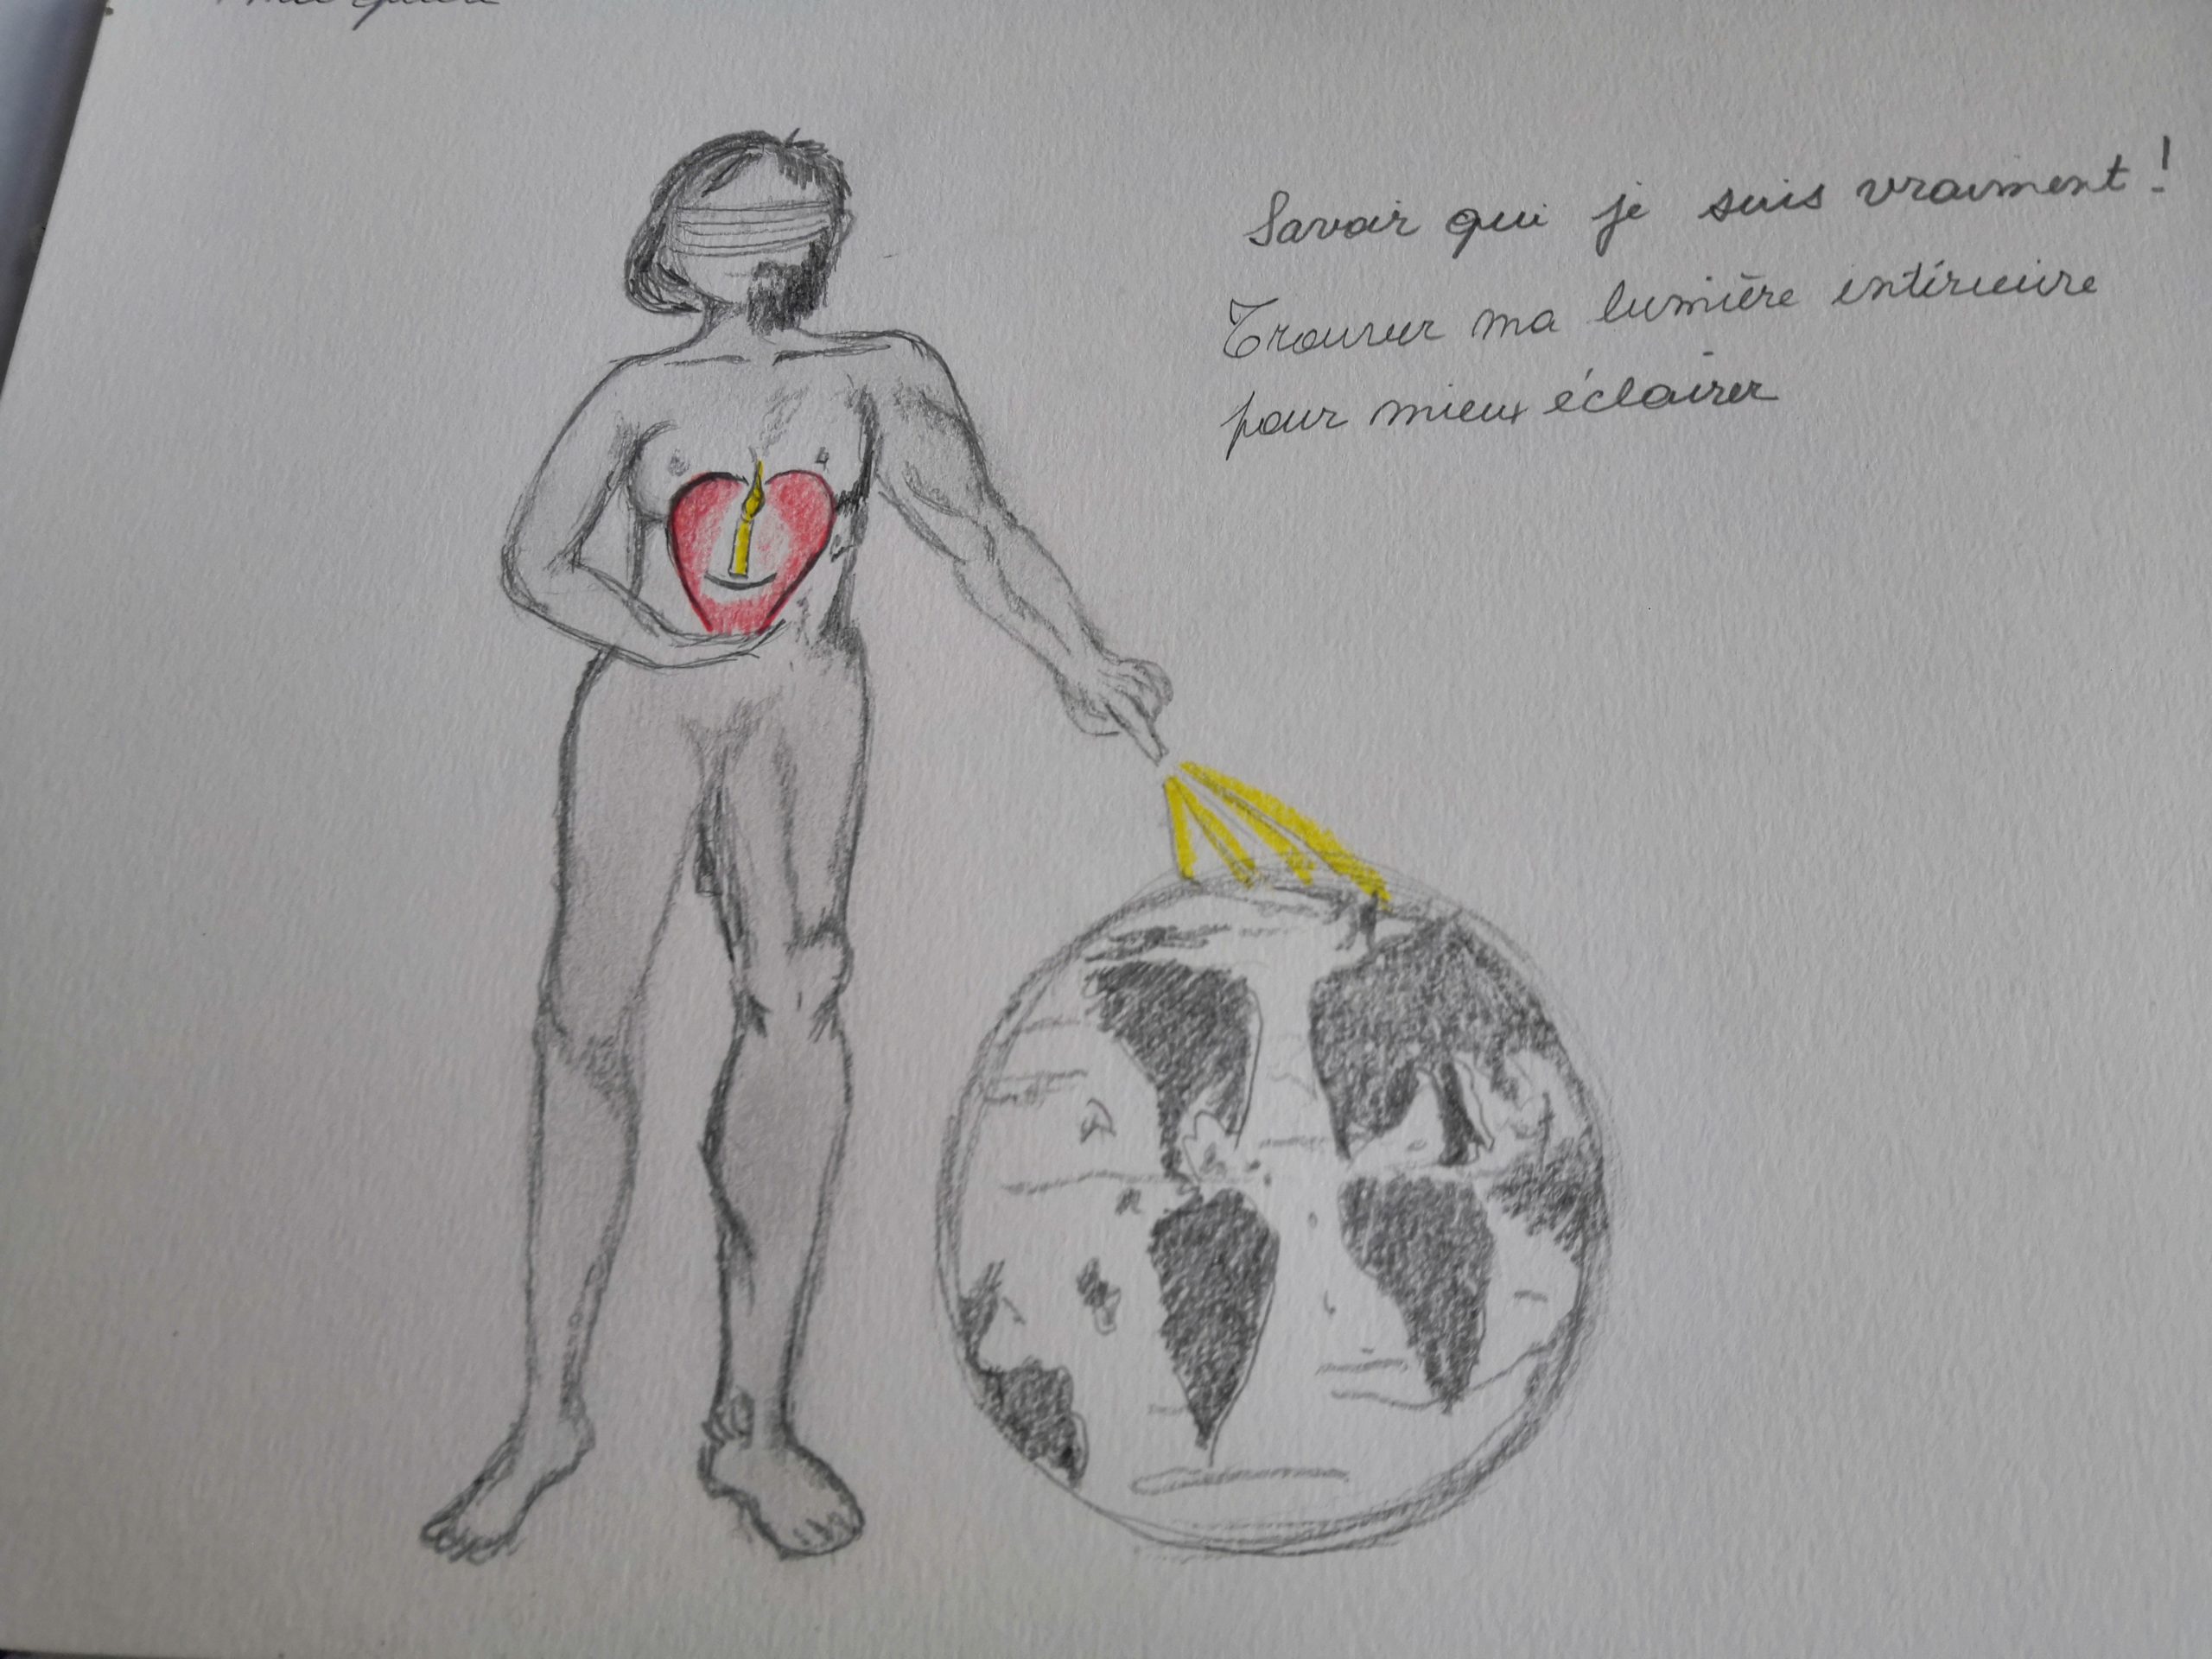 Savoir qui je suis vraiment !
Trouver ma lumière intérieure
pour mieux éclairer